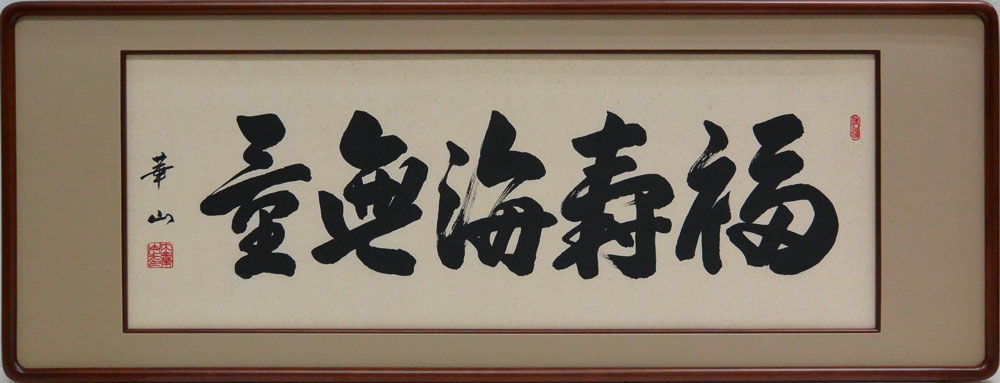 福寿海無量
華山